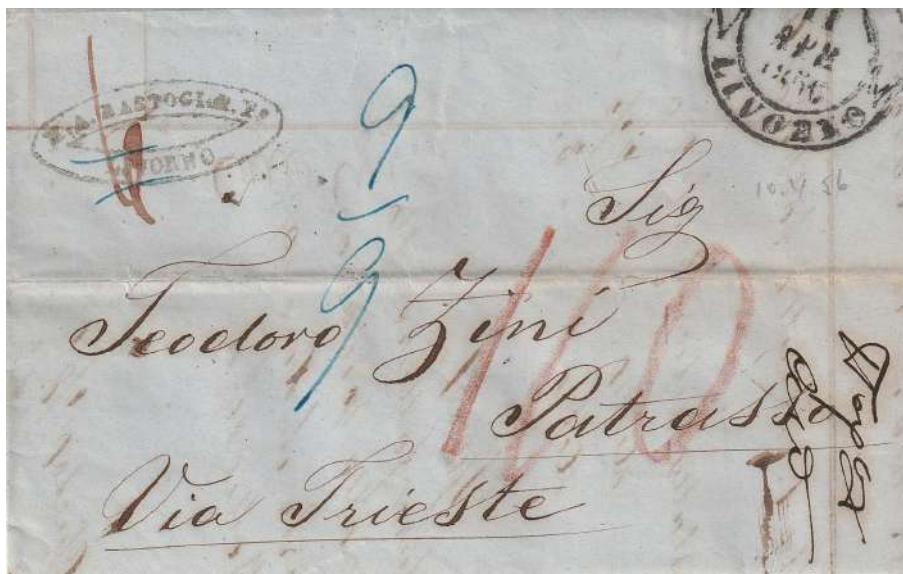 11
APR
1856
LIVORNO
BASTOGI
LIVORNO
9
9
10.4.56
Sig
Teodoro Zini
Patrasso
110
Via Trieste